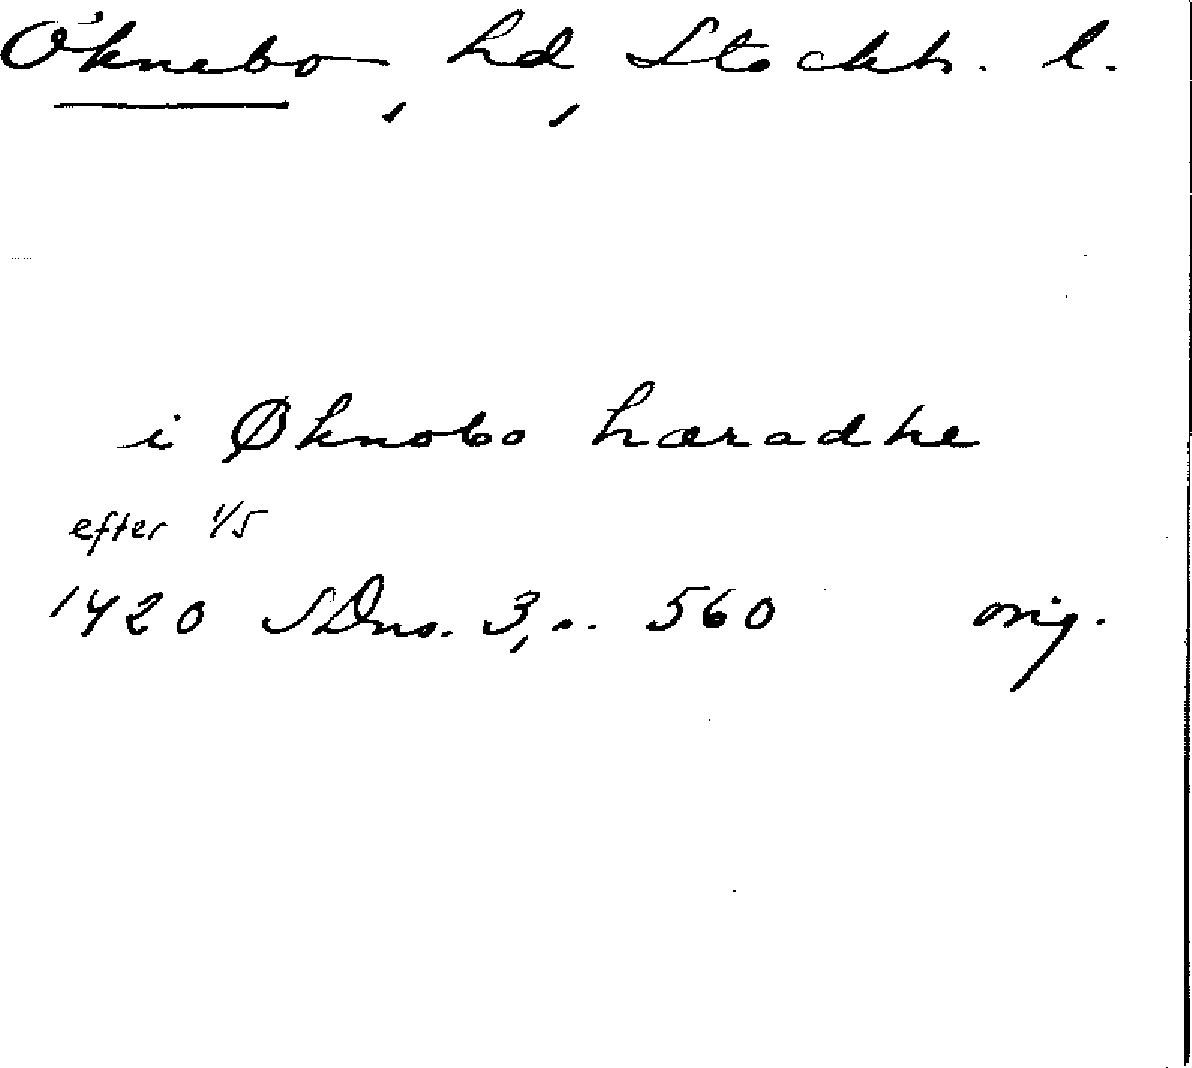 Öknebo, hd, Stockh. l.
i Øknobo hæradhe
efter 1/5
1420 SDns. 3, s. 560 orig.